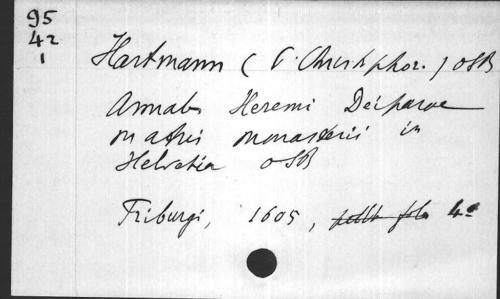 95
42
1
Hartmann ( P. Christophor. ) OSB
Annales Heremi Deiparae
matris monasterii in
Helvetia OSB
Friburgi, 1605, 4°